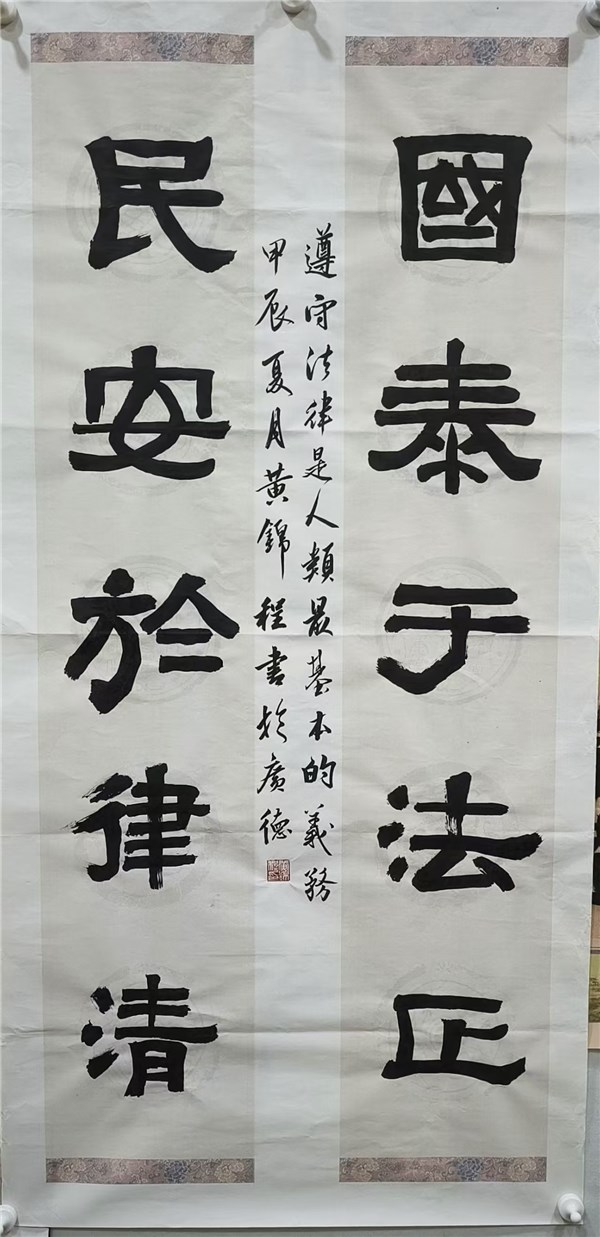 國泰于法正
遵守法律是人類最基本的義務
甲辰夏月黄錦程書於廣德
民安於律清